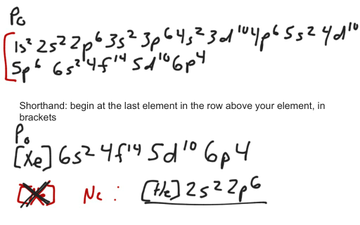 Po
1s² 2s² 2p⁶ 3s² 3p⁶ 4s² 3d¹⁰ 4p⁶ 5s² 4d¹⁰
5p⁶ 6s² 4f¹⁴ 5d¹⁰ 6p⁴
Shorthand: begin at the last element in the row above your element, in
brackets
Po
[Xe] 6s² 4f¹⁴ 5d¹⁰ 6p4
Ne: [He] 2s² 2p⁶